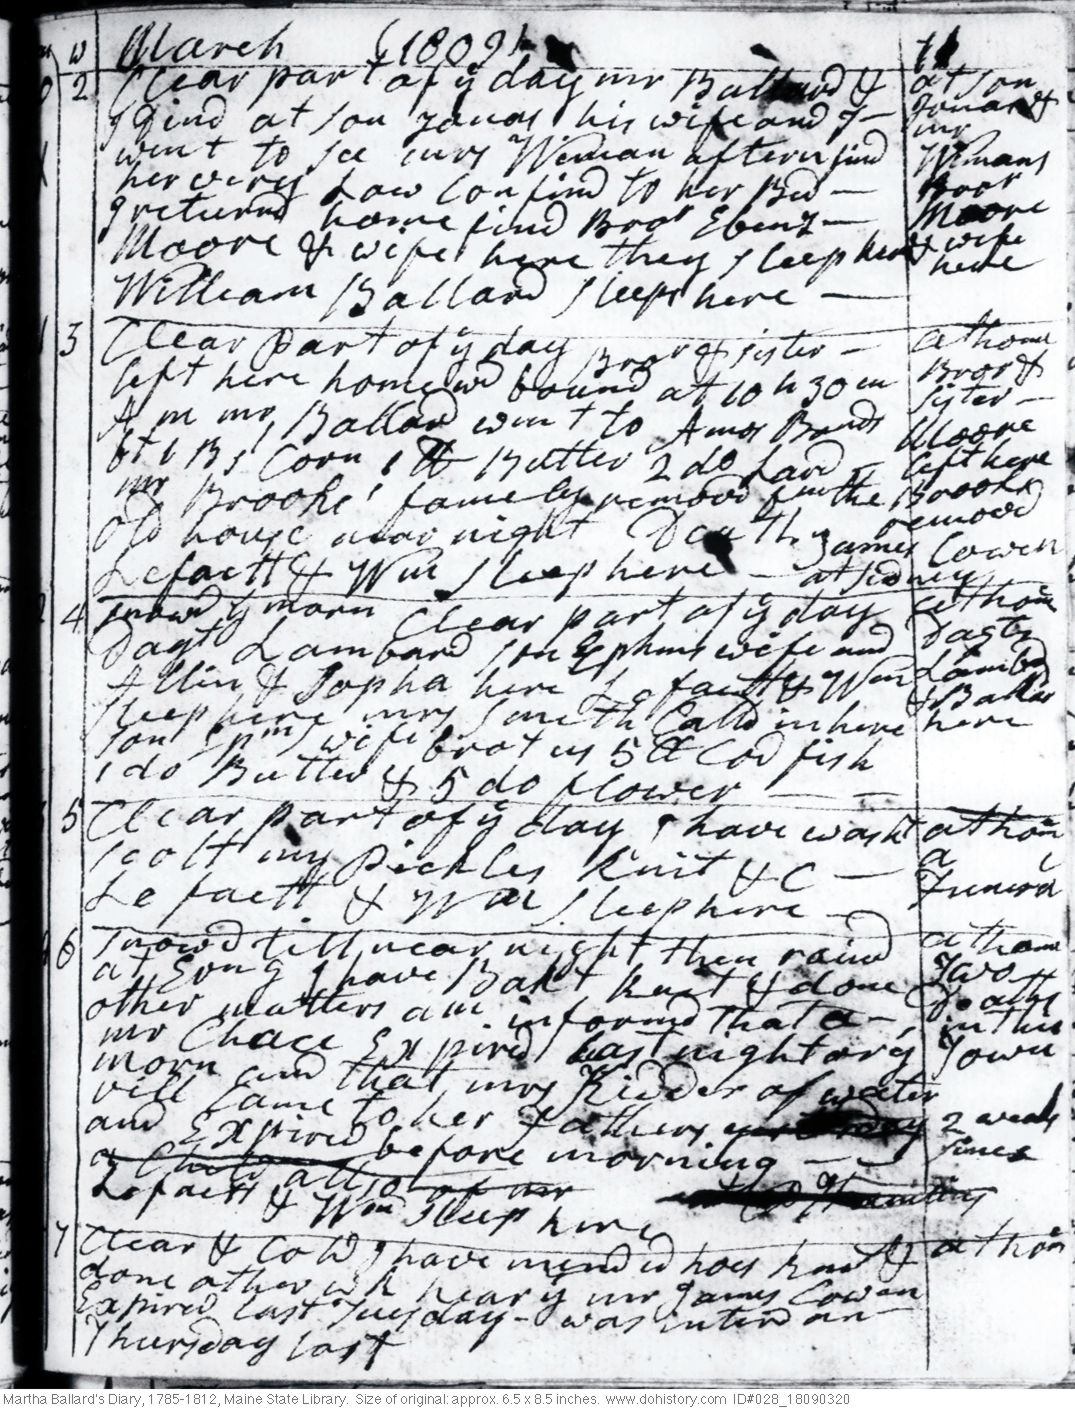 m w March (1809)
2 Clear part of ÿ day mr Ballard & at son
I Dind at son Jonas his wife and I - Jonas &
went to see mrs Weman aftern find mr Wimans
her very Low Confind to her Bed - Bror
I returnd home find Bror Ebenz - Moore
Moore & wife here they sleep here & wife here
William Ballard sleeps here -
3 Clear part of ÿ day Bror & sister - at home
left here homewd bound at 10 h 30 m Bror &
A m mr Ballard went to Amos Bonds sister -
bt 1 Bs Corn 1 lb Butter 2 do Lard - Moore left here
mr Brooks' famely removd from the Brooks
old house near night Death removd
James Cowen
Lafaett & Wm sleep here - at Sidney
4 snowd ÿ morn Clear part of ÿ day at home
Dagt Lambard son Ephms wife and Dagts
Allin & Sopha here Lafaett & Wm Lambd
sleep here mrs smeth Calld in here & Ballard here
son Epms wife brot us 5 lb Cod fish
1 do Butter & 5 do flower - -
5 Clear part of ÿ day I have washt at home
scolt my Pickles Knit & C - a
Lafaett & Wm sleep here - Funeral
6 snowd till near night then raind at home
at Evng I have Bakt Knit & done Two
other matters am informd that a - Deaths
mr Chace Expired last night or ÿ in this
morn and that mrs Kidder of water Town
vill Came to her Fathers
and Expired before morning - 2 weeks since
a Child allso of mr
Lafaett & Wm sleep here
7 Clear & Cold I have mended hoes knit & at home
done other wk hear ÿ mr James Cowen
Expired last Tuesday - was Enterd on
Thursday last
Martha Ballard's Diary, 1785-1812, Maine State Library. Size of original: approx. 6.5 x 8.5 inches. www.dohistory.com ID#028_18090320